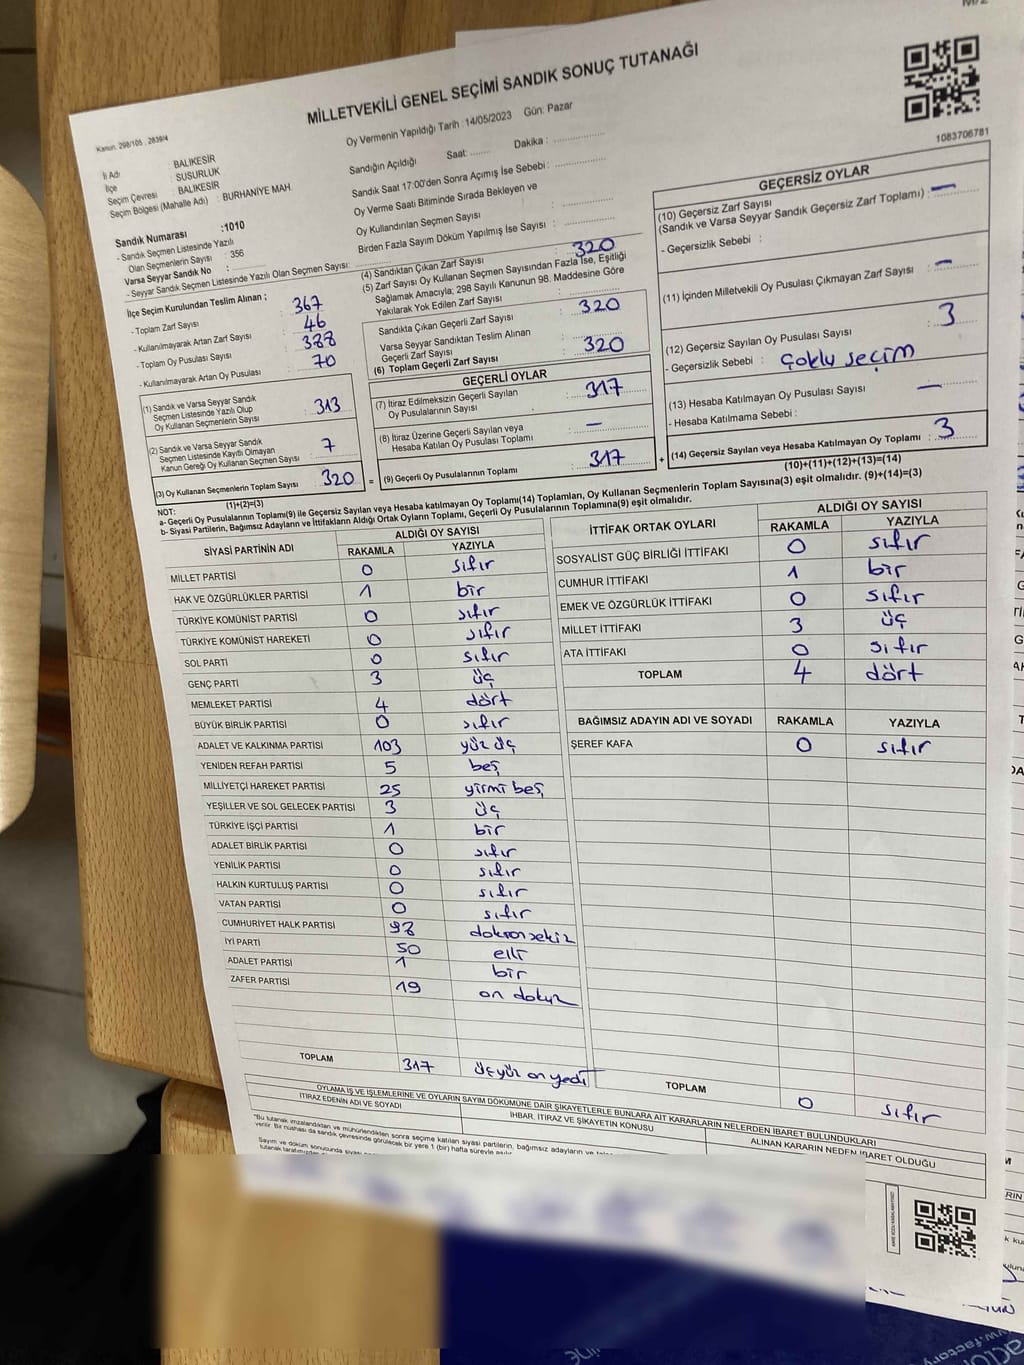 MİLLETVEKİLİ GENEL SEÇİMİ SANDIK SONUÇ TUTANAĞI
Kanun. 298/105 , 2839/4
1083706781
İl Adı : BALIKESİR
İlçe : SUSURLUK
Seçim Çevresi : BALIKESİR
Seçim Bölgesi (Mahalle Adı) : BURHANİYE MAH.
Sandık Numarası :1010
- Sandık Seçmen Listesinde Yazılı
Olan Seçmenlerin Sayısı : 356
Varsa Seyyar Sandık No :
- Seyyar Sandık Seçmen Listesinde Yazılı Olan Seçmen Sayısı:
Oy Vermenin Yapıldığı Tarih :14/05/2023 Gün: Pazar
Sandığın Açıldığı Saat: Dakika :
Sandık Saat 17:00'den Sonra Açımış İse Sebebi :
Oy Verme Saati Bitiminde Sırada Bekleyen ve
Oy Kullandırılan Seçmen Sayısı :
Birden Fazla Sayım Döküm Yapılmış İse Sayısı :
İlçe Seçim Kurulundan Teslim Alınan ;
- Toplam Zarf Sayısı : 367
- Kullanılmayarak Artan Zarf Sayısı : 46
- Toplam Oy Pusulası Sayısı : 388
- Kullanılmayarak Artan Oy Pusulası : 70
(1) Sandık ve Varsa Seyyar Sandık
Seçmen Listesinde Yazılı Olup
Oy Kullanan Seçmenlerin Sayısı : 313
(2) Sandık ve Varsa Seyyar Sandık
Seçmen Listesinde Kayıtlı Olmayan
Kanun Gereği Oy Kullanan Seçmen Sayısı : 7
(3) Oy Kullanan Seçmenlerin Toplam Sayısı : 320
(1)+(2)=(3)
(4) Sandıktan Çıkan Zarf Sayısı : 320
(5) Zarf Sayısı Oy Kullanan Seçmen Sayısından Fazla İse, Eşitliği
Sağlamak Amacıyla; 298 Sayılı Kanunun 98. Maddesine Göre
Yakılarak Yok Edilen Zarf Sayısı :
Sandıkta Çıkan Geçerli Zarf Sayısı : 320
Varsa Seyyar Sandıktan Teslim Alınan
Geçerli Zarf Sayısı :
(6) Toplam Geçerli Zarf Sayısı : 320
GEÇERLİ OYLAR
(7) İtiraz Edilmeksizin Geçerli Sayılan
Oy Pusulalarının Sayısı : 317
(8) İtiraz Üzerine Geçerli Sayılan veya
Hesaba Katılan Oy Pusulası Toplamı : —
= (9) Geçerli Oy Pusulalarının Toplamı : 317 +
GEÇERSİZ OYLAR
(10) Geçersiz Zarf Sayısı
(Sandık ve Varsa Seyyar Sandık Geçersiz Zarf Toplamı) : —
- Geçersizlik Sebebi :
(11) İçinden Milletvekili Oy Pusulası Çıkmayan Zarf Sayısı : —
(12) Geçersiz Sayılan Oy Pusulası Sayısı : 3
- Geçersizlik Sebebi : çoklu seçim
(13) Hesaba Katılmayan Oy Pusulası Sayısı : —
- Hesaba Katılmama Sebebi :
(14) Geçersiz Sayılan veya Hesaba Katılmayan Oy Toplamı : 3
(10)+(11)+(12)+(13)=(14)
NOT:
a- Geçerli Oy Pusulalarının Toplamı(9) ile Geçersiz Sayılan veya Hesaba katılmayan Oy Toplamı(14) Toplamları, Oy Kullanan Seçmenlerin Toplam Sayısına(3) eşit olmalıdır. (9)+(14)=(3)
b- Siyasi Partilerin, Bağımsız Adayların ve İttifakların Aldığı Ortak Oyların Toplamı, Geçerli Oy Pusulalarının Toplamına(9) eşit olmalıdır.
SİYASİ PARTİNİN ADI ALDIĞI OY SAYISI
RAKAMLA YAZIYLA
MİLLET PARTİSİ 0 sıfır
HAK VE ÖZGÜRLÜKLER PARTİSİ 1 bir
TÜRKİYE KOMÜNİST PARTİSİ 0 sıfır
TÜRKİYE KOMÜNİST HAREKETİ 0 sıfır
SOL PARTİ 0 sıfır
GENÇ PARTİ 3 üç
MEMLEKET PARTİSİ 4 dört
BÜYÜK BİRLİK PARTİSİ 0 sıfır
ADALET VE KALKINMA PARTİSİ 103 yüz üç
YENİDEN REFAH PARTİSİ 5 beş
MİLLİYETÇİ HAREKET PARTİSİ 25 yirmi beş
YEŞİLLER VE SOL GELECEK PARTİSİ 3 üç
TÜRKİYE İŞÇİ PARTİSİ 1 bir
ADALET BİRLİK PARTİSİ 0 sıfır
YENİLİK PARTİSİ 0 sıfır
HALKIN KURTULUŞ PARTİSİ 0 sıfır
VATAN PARTİSİ 0 sıfır
CUMHURİYET HALK PARTİSİ 98 doksansekiz
İYİ PARTİ 50 elli
ADALET PARTİSİ 1 bir
ZAFER PARTİSİ 19 on dokuz
TOPLAM 317 üçyüz on yedi
İTTİFAK ORTAK OYLARI ALDIĞI OY SAYISI
RAKAMLA YAZIYLA
SOSYALİST GÜÇ BİRLİĞİ İTTİFAKI 0 sıfır
CUMHUR İTTİFAKI 1 bir
EMEK VE ÖZGÜRLÜK İTTİFAKI 0 sıfır
MİLLET İTTİFAKI 3 üç
ATA İTTİFAKI 0 sıfır
TOPLAM 4 dört
BAĞIMSIZ ADAYIN ADI VE SOYADI RAKAMLA YAZIYLA
ŞEREF KAFA 0 sıfır
TOPLAM 0 sıfır
OYLAMA İŞ VE İŞLEMLERİNE VE OYLARIN SAYIM DÖKÜMÜNE DAİR ŞİKAYETLERLE BUNLARA AİT KARARLARIN NELERDEN İBARET BULUNDUKLARI
İTİRAZ EDENİN ADI VE SOYADI
İHBAR, İTİRAZ VE ŞİKAYETİN KONUSU
ALINAN KARARIN NEDEN İBARET OLDUĞU